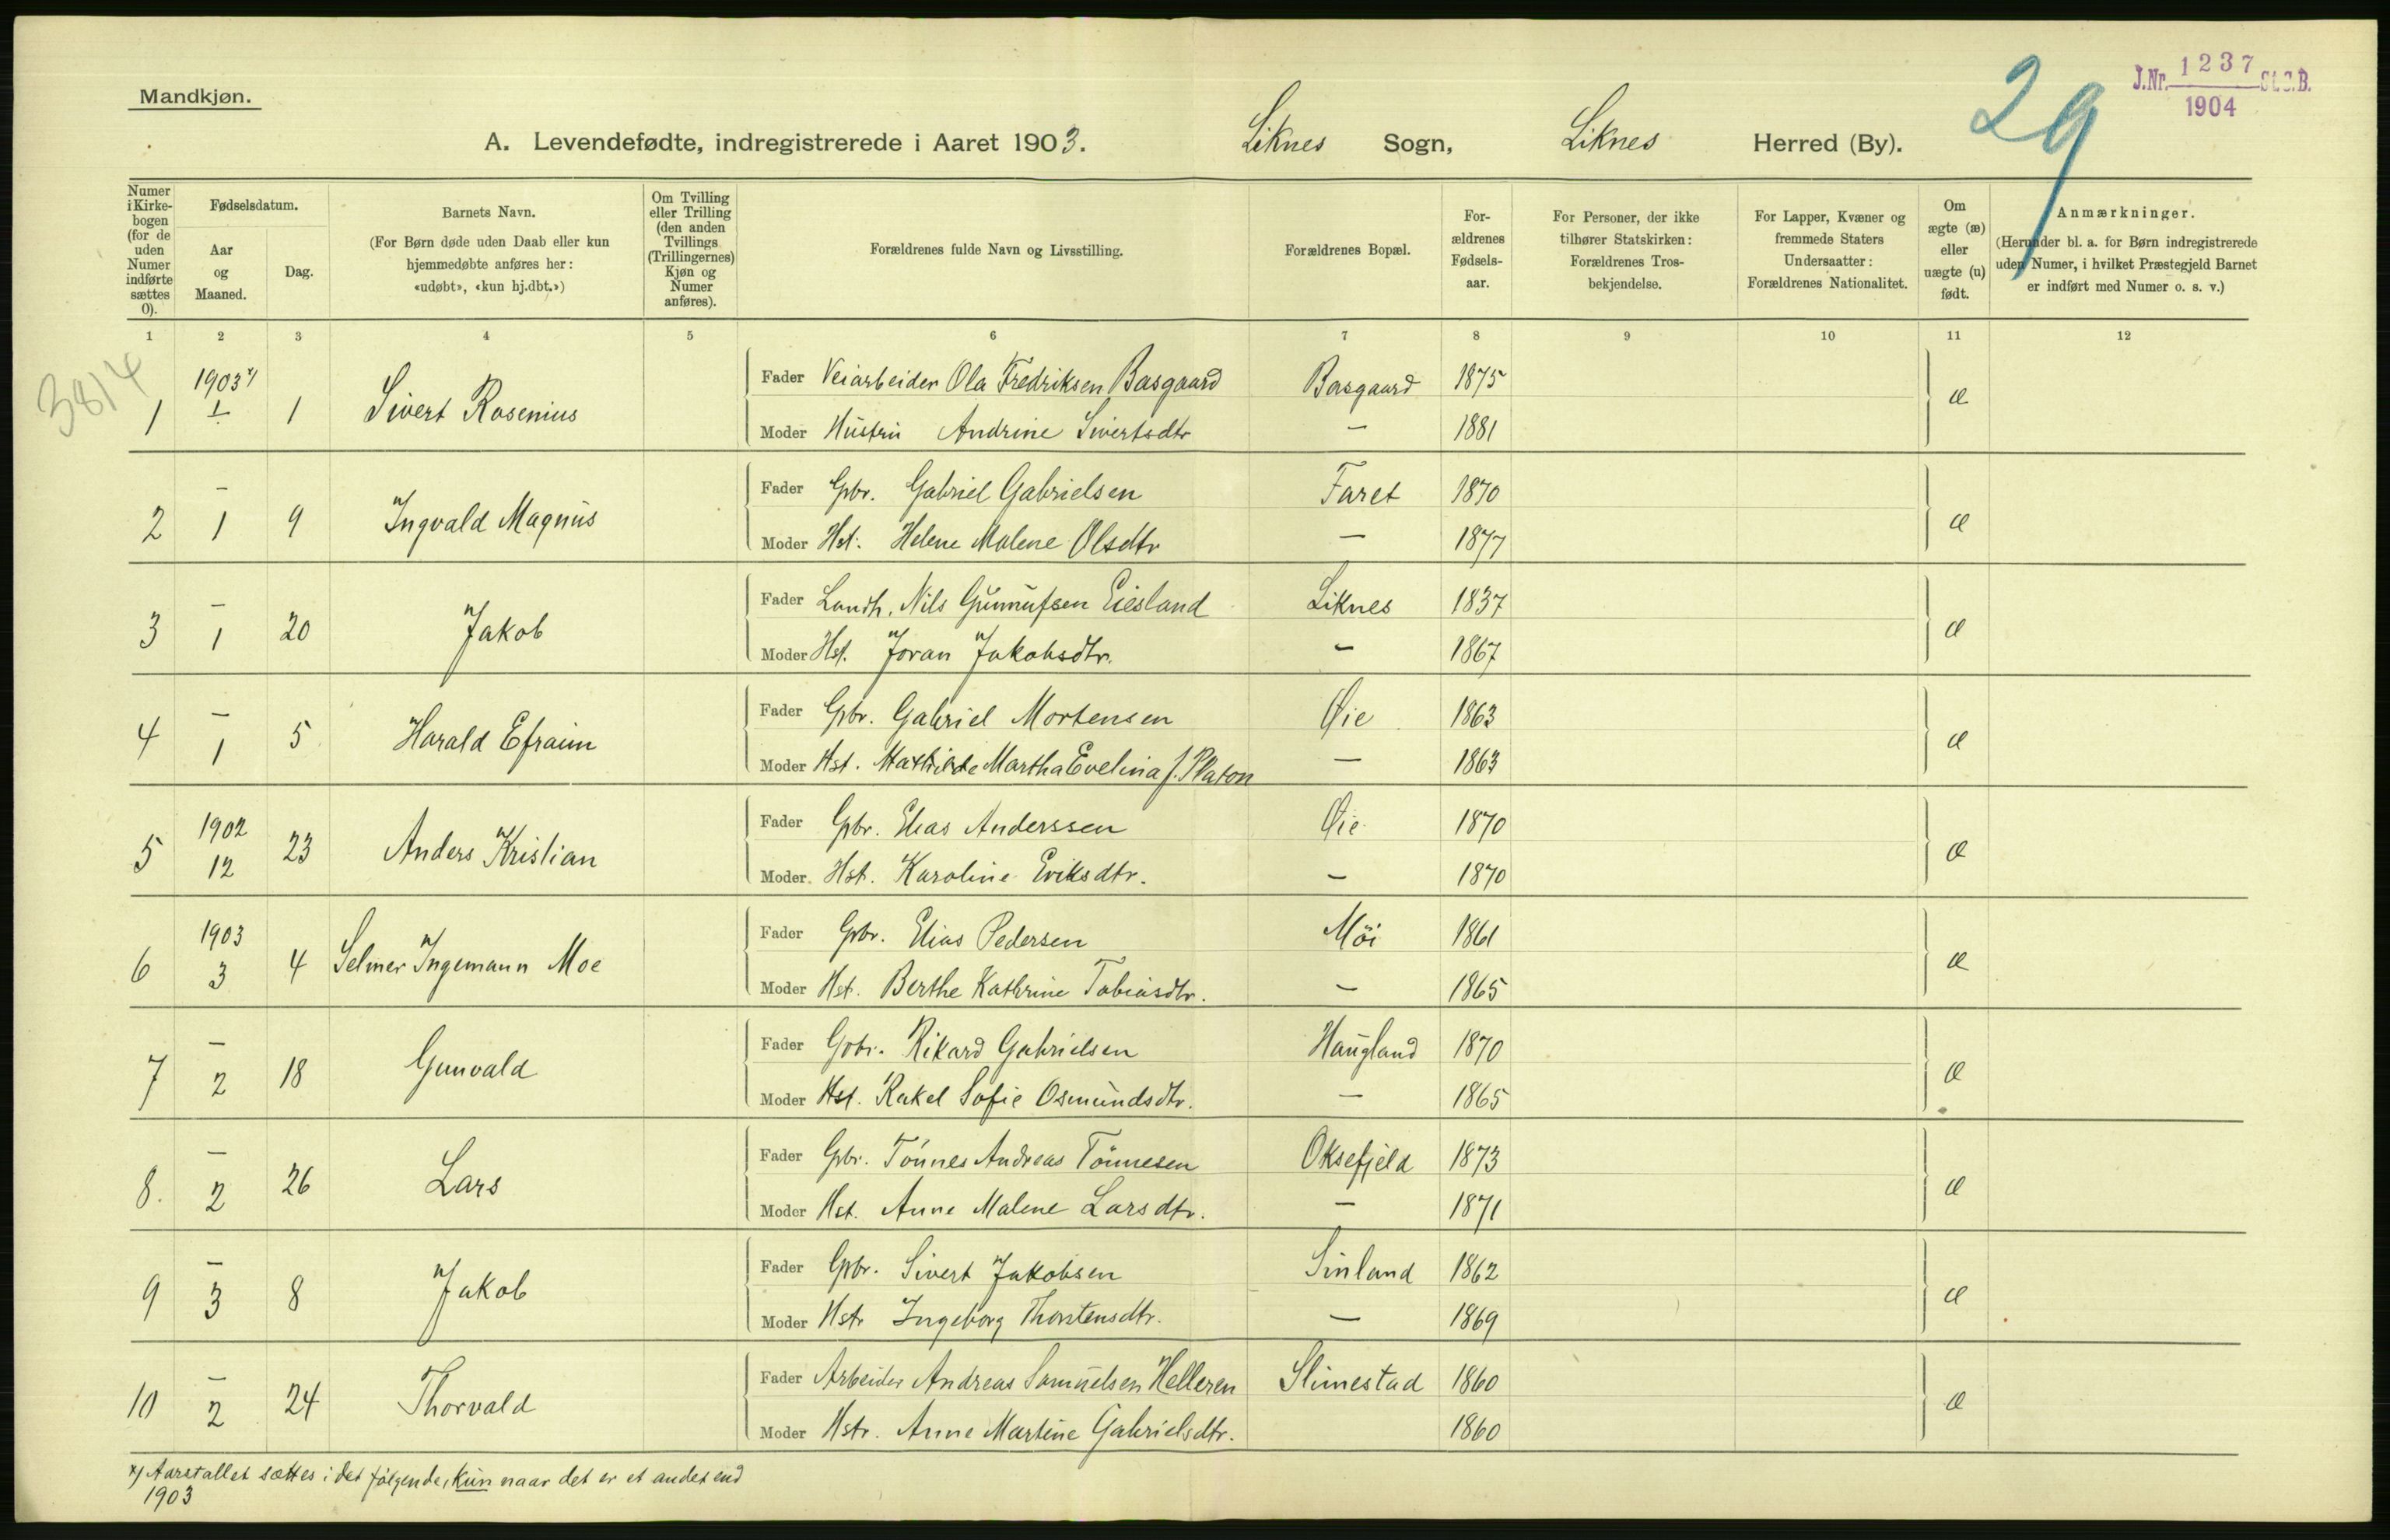 Mandkjøn.
J.Nr. 1237 St.C.B.
1904
29
A. Levendefødte, indregistrerede i Aaret 1903. Liknes Sogn, Liknes Herred (By).
Numer i Kirkebogen (for de uden Numer indførte sættes 0).
Fødselsdatum.
Aar og Maaned.
Dag.
Barnets Navn.
(For Børn døde uden Daab eller kun hjemmedøbte anføres her: «udøbt», «kun hj.dbt.»)
Om Tvilling eller Trilling (den anden Tvillings (Trillingernes) Kjøn og Numer anføres).
Forældrenes fulde Navn og Livsstilling.
Forældrenes Bopæl.
Forældrenes Fødselsaar.
For Personer, der ikke tilhører Statskirken: Forældrenes Trosbekjendelse.
For Lapper, Kvæner og fremmede Staters Undersaatter: Forældrenes Nationalitet.
Om ægte (æ) eller uægte (u) født.
Anmærkninger.
(Herunder bl. a. for Børn indregistrerede uden Numer, i hvilket Præstegjeld Barnet er indført med Numer o. s. v.)
1 2 3 4 5 6 7 8 9 10 11 12
3814
1 1903 x) 1 1 Sivert Rosenius Fader Veiarbeider Ola Fredriksen Basgaard Basgaard 1875 æ
Moder Hustru Andrine Sivertsdtr — 1881
2 — 1 9 Ingvald Magnus Fader Gbr. Gabriel Gabrielsen Faret 1870 æ
Moder Hst. Helene Malene Olsdtr — 1877
3 — 1 20 Jakob Fader Landh. Nils Gunnufsen Eiesland Liknes 1837 æ
Moder Hst. Joran Jakobsdtr. — 1867
4 — 1 5 Harald Efraim Fader Gbr. Gabriel Mortensen Øie 1863 æ
Moder Hst. Mathilde Martha Evelina f. Platon — 1863
5 1902 12 23 Anders Kristian Fader Gbr. Elias Anderssen Øie 1870 æ
Moder Hst. Karoline Eriksdtr. — 1870
6 1903 3 4 Selmer Ingemann Moe Fader Gbr. Elias Pedersen Möi 1861 æ
Moder Hst. Berthe Kathrine Tobiasdtr. — 1865
7 — 2 18 Gunvald Fader Gbr. Rikard Gabrielsen Haugland 1870 æ
Moder Hst. Rakel Sofie Osmundsdtr. — 1865
8. — 2 26 Lars Fader Gbr. Tönnes Andreas Tönnesen Oksefjeld 1873 æ
Moder Hst. Anne Malene Larsdtr. — 1871
9 — 3 8 Jakob Fader Gbr. Sivert Jakobsen Sinland 1862 æ
Moder Hstr Ingeborg Thorstensdtr. — 1869
10 — 2 24 Thorvald Fader Arbeider Andreas Samuelsen Helleren Slimestad 1860 æ
Moder Hstr. Anne Martine Gabrielsdtr. 1860
x) Aarstallet sættes i det følgende, kun naar det er et andet end
1903